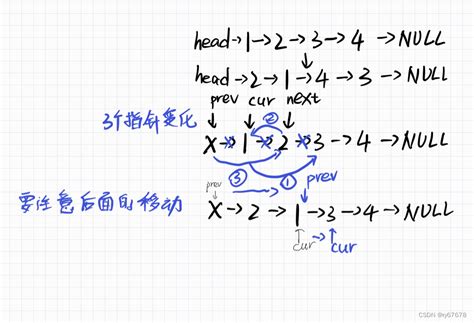 head→1→2→3→4→NULL
head→2→1→4→3→NULL
prev cur next
3个指针变化
②
X→1→2→3→4→NULL
③ ① prev
要注意后面的移动
prev
X→2→1→3→4→NULL
cur→cur
CSDN @ky67678